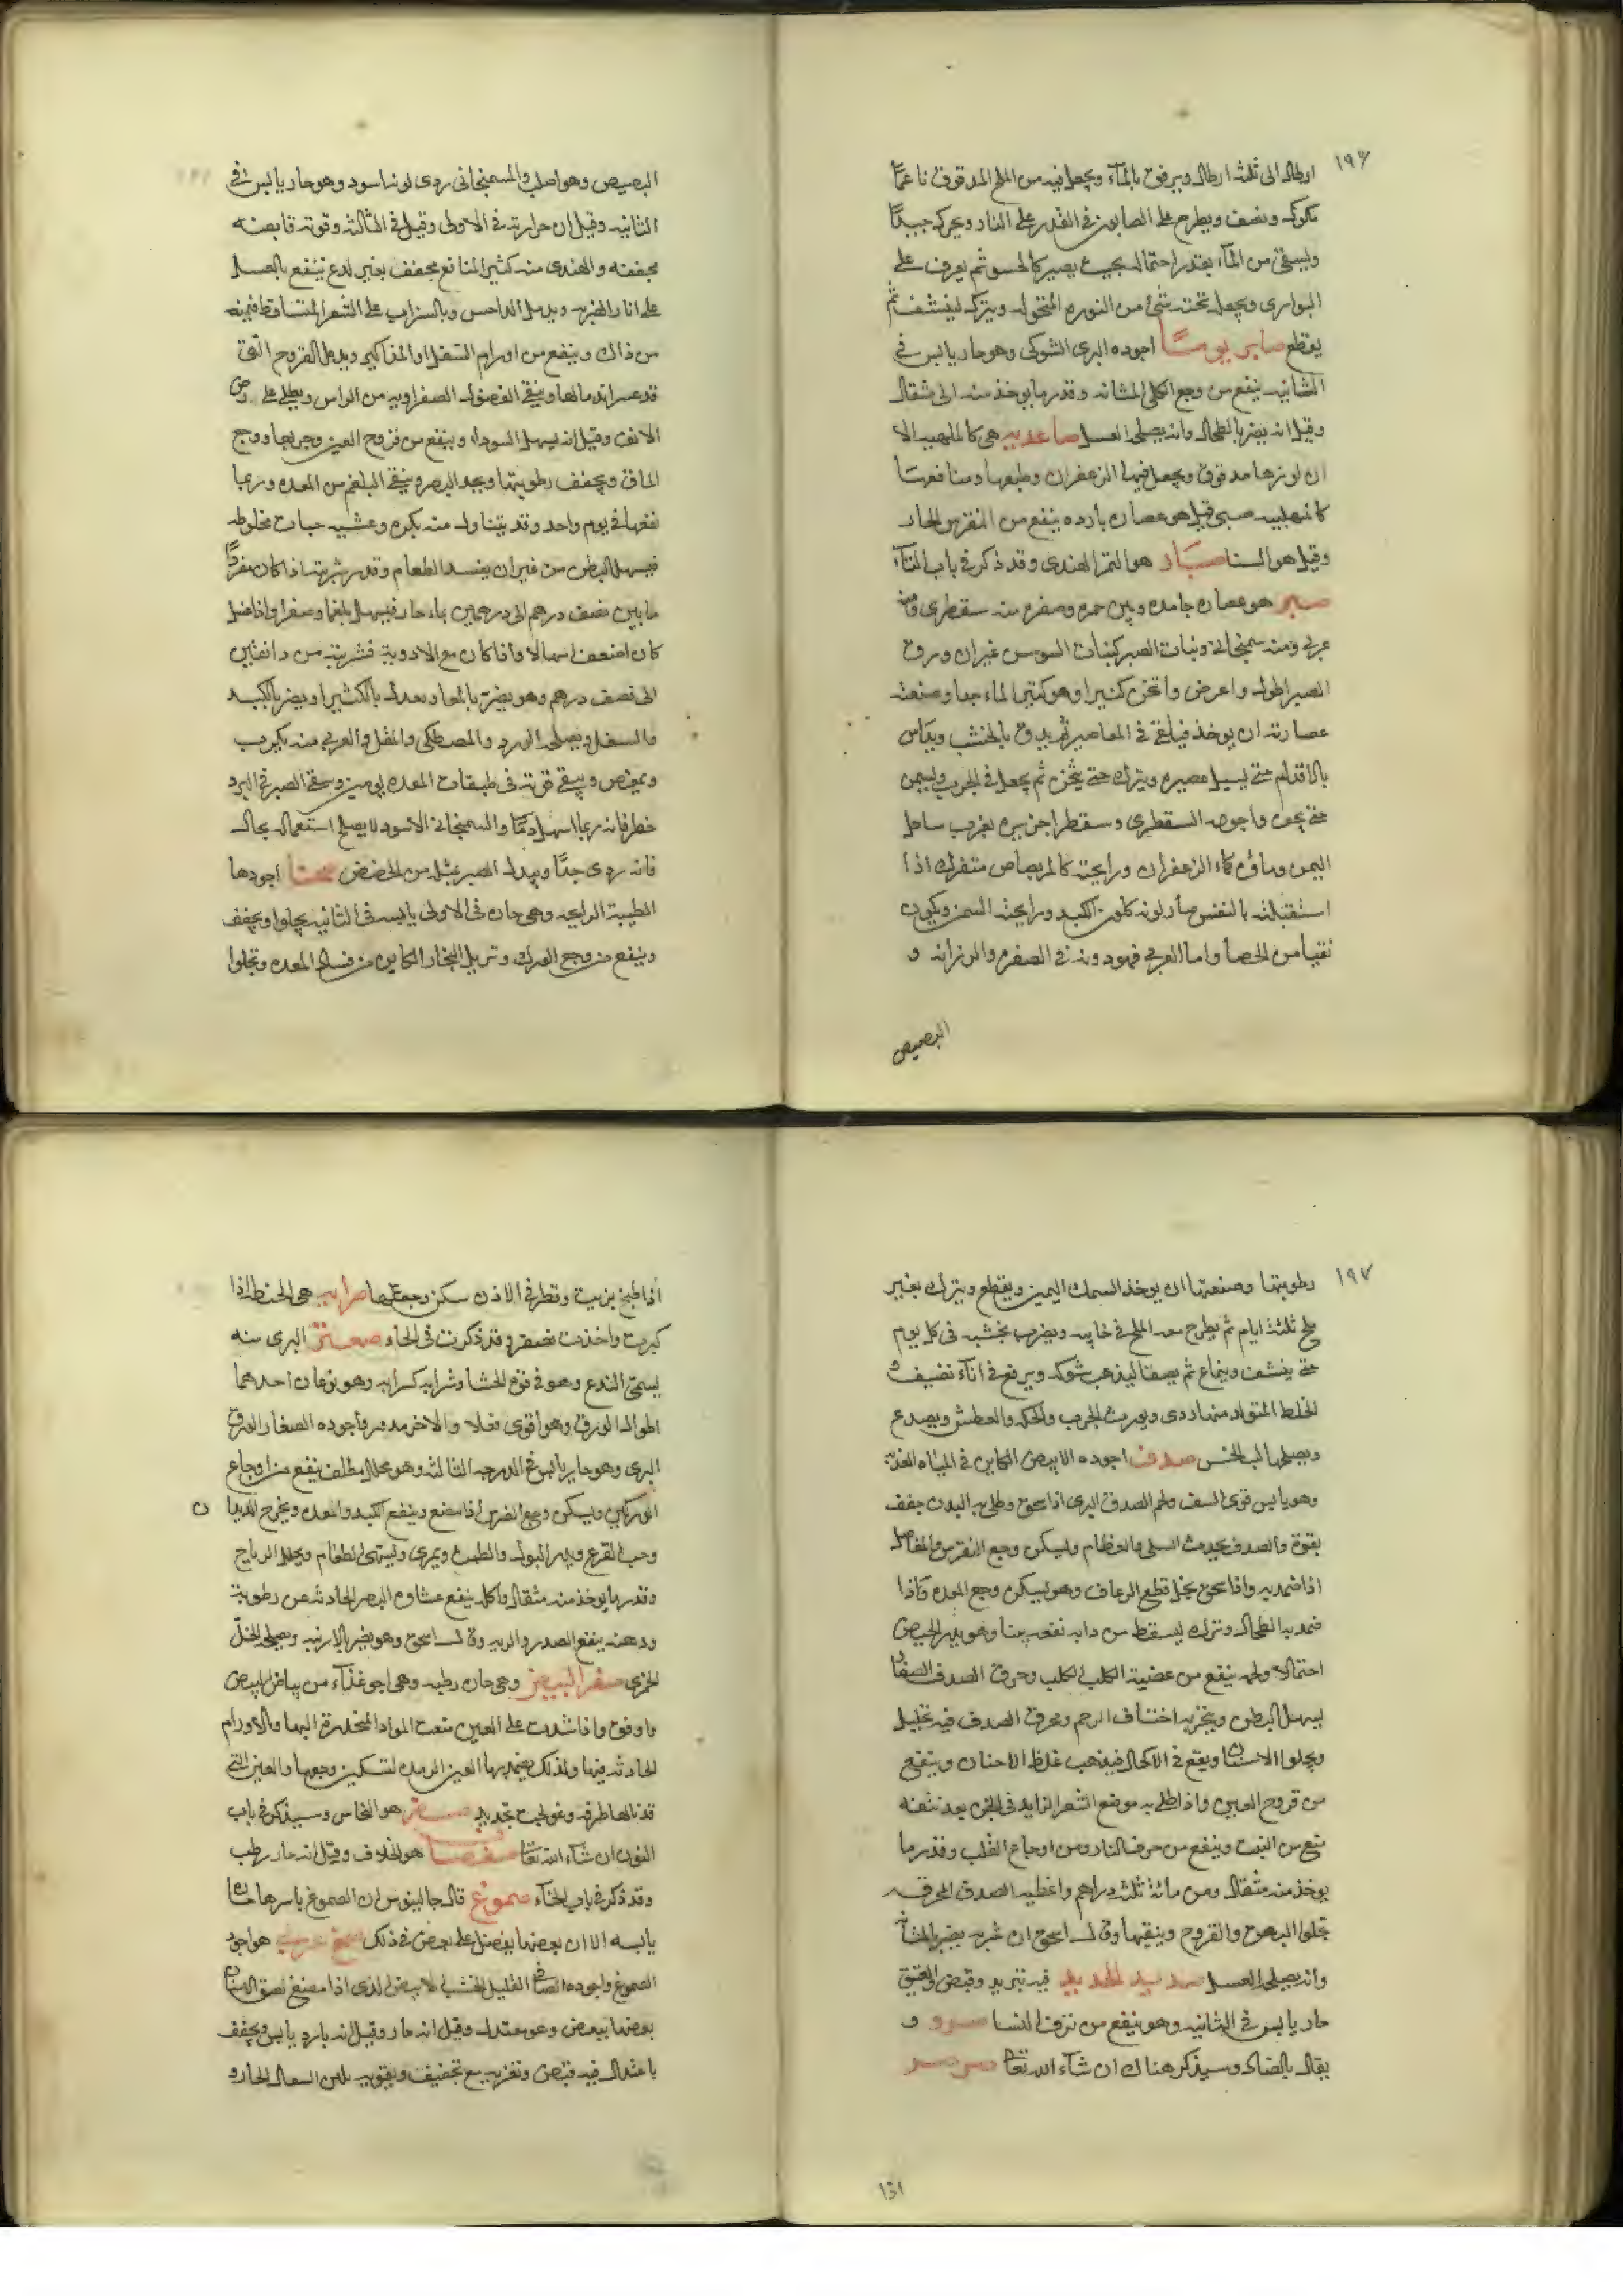 ١٩٦
ارطال الى ثلثة ارطال ويرفق بالمآء ويجعل فيه من الملح المدقوق ناعمًا
مكوك ونصف ويطرح على الصابون في القدر على النار ويحرك جيدًا
ويسقى من المآء بقدر احتماله بحيث يصير كالحسو ثم يغرف على
البوارى ويجعل تحته شئ من النوره المنخوله ويترك لينشف ثم
يقطع صابر يومًا اجوده البرى الشوكى وهو حار يابس في
الثانيه ينفع من وجع الكلى والمثانه وقدر ما يوخذ منه الى مثقال
وقيل انه يضر بالطحال وانه يصلحه العسل صاعديه هي كالمهلبيه الا
ان لوزها مدقوق ويجعل فيها الزعفران وطبعها ومنافعها
كالمهلبيه صبى قيل هو عصاره بارده ينفع من النقرس الحار
وقيل هو السنا صبّار هو التمر الهندى وقد ذكر في باب التآء
صبر هو عصاره جامده وبين حمره وصفره منه سقطرى ومنه
عربى ومنه سمنجانى ونبات الصبر كنبات السوسن غير ان ورق
الصبر اطول واعرض واثخن كثيرا وهو كثير الماء جدا وصنعة
عصارته ان يوخذ فيلقى في المعاصير ثم يدق بالخشب ويداس
بالاقدام حتى يسيل عصيره ويترك حتى يثخن ثم يجعل في الجرب ويشمس
حتى يجف واجوده السقطرى وسقطرا جزيره بقرب ساحل
اليمن وماؤه كماء الزعفران ورايحته كالمر بصاص متفرك اذا
استقبلته بالنفس صار لونه كلون الكبد ورايحته السمن ويكون
نقيا من الحصا واما العربى فهو دونه في الصفره والرزانه و
البصيص
البصيص وهو اصلب والسمنجانى ردى لونه اسود وهو حار يابس في
الثانيه وقيل ان حرارته في الاولى وقيل في الثالثه وقوته قابضه
مجففه والهندى منه كثير المنافع مجفف بغير لدع ينفع بالعسل
على اثار الضربه ويدمل الداحس وبالشراب على الشعر المتساقط فيمنع
من ذلك وينفع من اورام السفل والمذاكير ويدمل القروح التى
قد عسر اندمالها وينقى الفضول الصفراويه من الراس ويطلى على
الانف وقيل انه يسهل السودا وينفع من قروح العين وجربها ووجع
الماق ويجفف رطوبتها ويحد البصر وينقى البلغم من المعده وربما
نفعها في يوم واحد وقد يتناول منه بكره وعشيه حبات مخلوطه
فيسهل البطن من غير ان يفسد الطعام وقدر شربته اذا كان مفردًا
ما بين نصف درهم الى درهمين بماء حار فيسهل بلغما وصفرا واذا غسل
كان اضعف اسهالا واذا كان مع الادوية فشربته من دانقين
الى نصف درهم وهو يضر بالمعا وبعدله بالكثيرا ويضر بالكبد
والسفل ويصلحه الورد والمصطكى والمقل والعربى منه يكرب
ويمغص ويبقى قوته في طبقات المعده يومين وسقى الصبر في البرد
خطر فانه ربما اسهل دمًا والسمنجانى الاسود لا يصلح استعماله بحال
فانه ردى جدًا وبدل الصبر بمثله من الحضض صحنا اجودها
الطيبة الرايحه وهى حاره في الاولى يابسه في الثانيه يجلوا ويجفف
وينفع من وجع الورك وتزيل البخار الكاين من فساد المعده وتجلوا
١٩٧
رطوبتها وصنعتها ان يوخذ السمك اليمين ويقطع ويترك بغير
ملح ثلثة ايام ثم يطرح معه الملح في خابيه ويضرب بخشبه في كل يوم
حتى ينشف وينماع ثم يصفا ليذهب شوكه ويرفع في انآء نضيف و
الخلط المتولد منها ردى ويورث الجرب والحكه والعطش ويصدع
ويصلحها لب الخس صدف اجوده الابيض الكاين في المياه العذبه
وهو يابس قوى السف ولحم الصدف البرى اذا سحق وطلى به البدن جفف
بقوة والصدف يحدث السلى والعظام ويسكن وجع النقرس والمفاصل
اذا ضمد به واذا سحق بخل قطع الرعاف وهو يسكن وجع المعده واذا
ضمد به الطحال وترك ليسقط من ذاته نفعه بينا وهو يدر الحيض
احتمالا ولحمه ينفع من عضة الكلب الكلب وحرق الصدف الصغار
يسهل البطن ويتبخر به اختناق الرحم ومحرق الصدف فيه تحليل
ويجلوا الاسنان ويقع في الاكحال فيذهب غلظ الاجفان وينفع
من قروح العين واذا طلى به موضع الشعر الزايد في الجفن بعد نتفه
منع من النبت وينفع من حرق النار ومن اوجاع القلب وقدر ما
يوخذ منه مثقال ومن مائة ثلثة دراهم واغطيه الصدف المحرقه
تجلوا البهق والقروح وينقيها وقال اسحق ان شربه يضر بالمثانه
وانه يصلحه العسل صديد الحديد فيه تبريد وقبض والعتيق
حار يابس في الثانيه وهو ينفع من نزف النسا صرو و
يقال بالضاد وسيذكر هناك ان شآء الله تعا صرصر
١٦١
اذا طبخ بزيت وقطر في الاذن سكن وجعها صرابيه هى الحنطه اذا
كبرت واخذت تصفر وقد ذكرت في الحاء صعتر البرى منه
يسمى الندع وهو في قوة الحشا وشرابه كشرابه وهو نوعان احدهما
طوال الورق وهو اقوى فعلا والاخر مدور واجوده الصغار الورق
البرى وهو حار يابس في الدرجه الثالثه وهو محلل ملطف ينفع من اوجاع
الوركين ويسكن وجع الضرس اذا مضغ وينفع الكبد والمعده ويخرج الديدا ن
وحب القرع ويدر البول والطمث ويمرى ويشهى الطعام ويحلل الرياح
وقدر ما يوخذ منه مثقال واكله ينفع عشاوة البصر الحادثه عن رطوبة
ودهنه ينفع الصدر والريه وقال اسحق وهو يضر بالارنبه ويصلحه الخل
الخمرى صفر البيض وهى حاره رطبه وهى اجود غذآء من بياض البيض
واوفق واذا شدت على العين منعت المواد المنحدرة اليها والاورام
الحادثه فيها ولذلك يضمد بها العين الرمده لتسكين وجعها والعين التى
قد نالها طرفه وعولجت بحديد صفر هو النحاس وسيذكر في باب
النون ان شآء الله تعا صفصا هو الخلاف وقيل انه حار رطب
وقد ذكر في باب الخآء صموغ قال جالينوس ان الصموغ باسرها حاره
يابسه الا ان بعضها يفضل على بعض في ذلك صمغ عربى هو اجود
الصموغ واجوده الصافى القليل الخشب الابيض الذى اذا مضغ لصق الاسنان
بعضها ببعض وهو معتدل وقيل انه حار وقيل انه بارد يابس ويجفف
باعتدال فيه قبض وتغريه مع تجفيف وتقويه يلين السعال الحار و